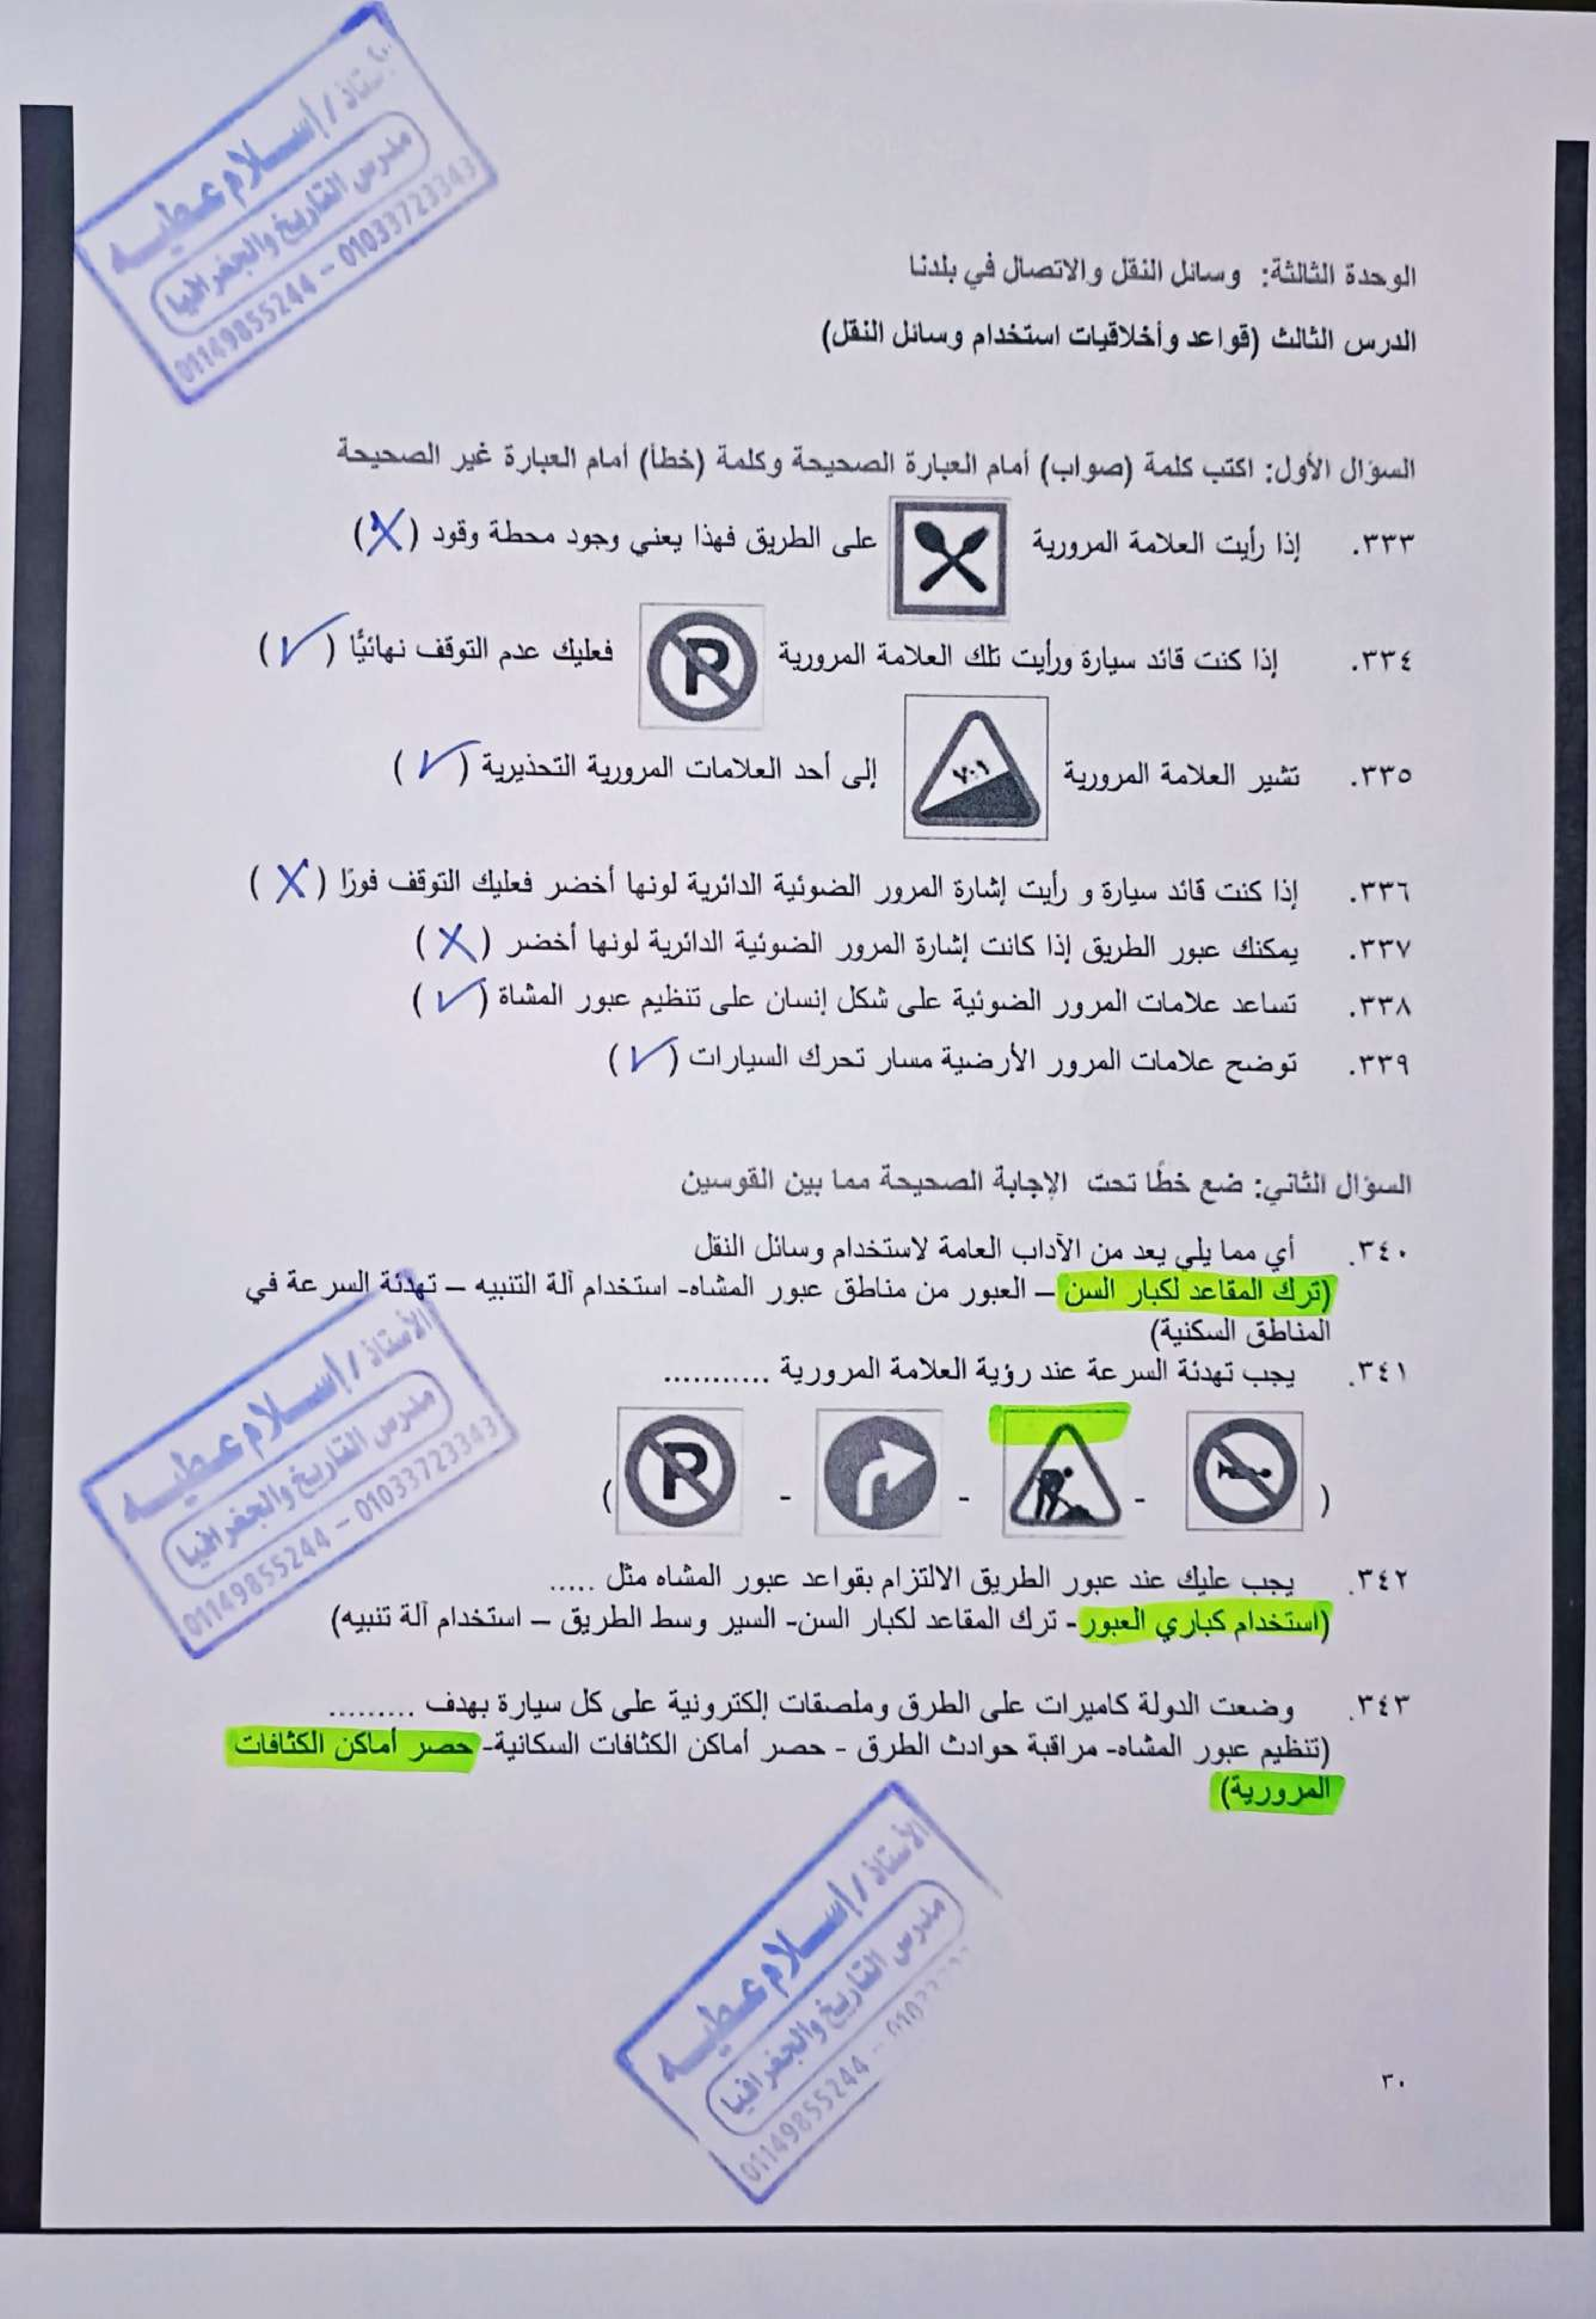 الأستاذ / إسلام عطيه
مدرس التاريخ والجغرافيا
01149855244 - 01033723343
الوحدة الثالثة: وسائل النقل والاتصال في بلدنا
الدرس الثالث (قواعد وأخلاقيات استخدام وسائل النقل)
السؤال الأول: اكتب كلمة (صواب) أمام العبارة الصحيحة وكلمة (خطأ) أمام العبارة غير الصحيحة
٣٣٣. إذا رأيت العلامة المرورية على الطريق فهذا يعني وجود محطة وقود (X)
٣٣٤. إذا كنت قائد سيارة ورأيت تلك العلامة المرورية P فعليك عدم التوقف نهائيًّا (✓)
٣٣٥. تشير العلامة المرورية ٧:١ إلى أحد العلامات المرورية التحذيرية (✓)
٣٣٦. إذا كنت قائد سيارة و رأيت إشارة المرور الضوئية الدائرية لونها أخضر فعليك التوقف فورًا (X)
٣٣٧. يمكنك عبور الطريق إذا كانت إشارة المرور الضوئية الدائرية لونها أخضر (X)
٣٣٨. تساعد علامات المرور الضوئية على شكل إنسان على تنظيم عبور المشاة (✓)
٣٣٩. توضح علامات المرور الأرضية مسار تحرك السيارات (✓)
السؤال الثاني: ضع خطًا تحت الإجابة الصحيحة مما بين القوسين
٣٤٠. أي مما يلي يعد من الآداب العامة لاستخدام وسائل النقل
(ترك المقاعد لكبار السن – العبور من مناطق عبور المشاه- استخدام آلة التنبيه – تهدئة السرعة في
المناطق السكنية)
٣٤١. يجب تهدئة السرعة عند رؤية العلامة المرورية ...........
( - - - P)
الأستاذ / إسلام عطيه
مدرس التاريخ والجغرافيا
01149855244 - 01033723343
٣٤٢. يجب عليك عند عبور الطريق الالتزام بقواعد عبور المشاه مثل .....
(استخدام كباري العبور- ترك المقاعد لكبار السن- السير وسط الطريق – استخدام آلة تنبيه)
٣٤٣. وضعت الدولة كاميرات على الطرق وملصقات إلكترونية على كل سيارة بهدف .........
(تنظيم عبور المشاه- مراقبة حوادث الطرق - حصر أماكن الكثافات السكانية- حصر أماكن الكثافات
المرورية)
الأستاذ / إسلام عطيه
مدرس التاريخ والجغرافيا
01149855244 -
٣٠